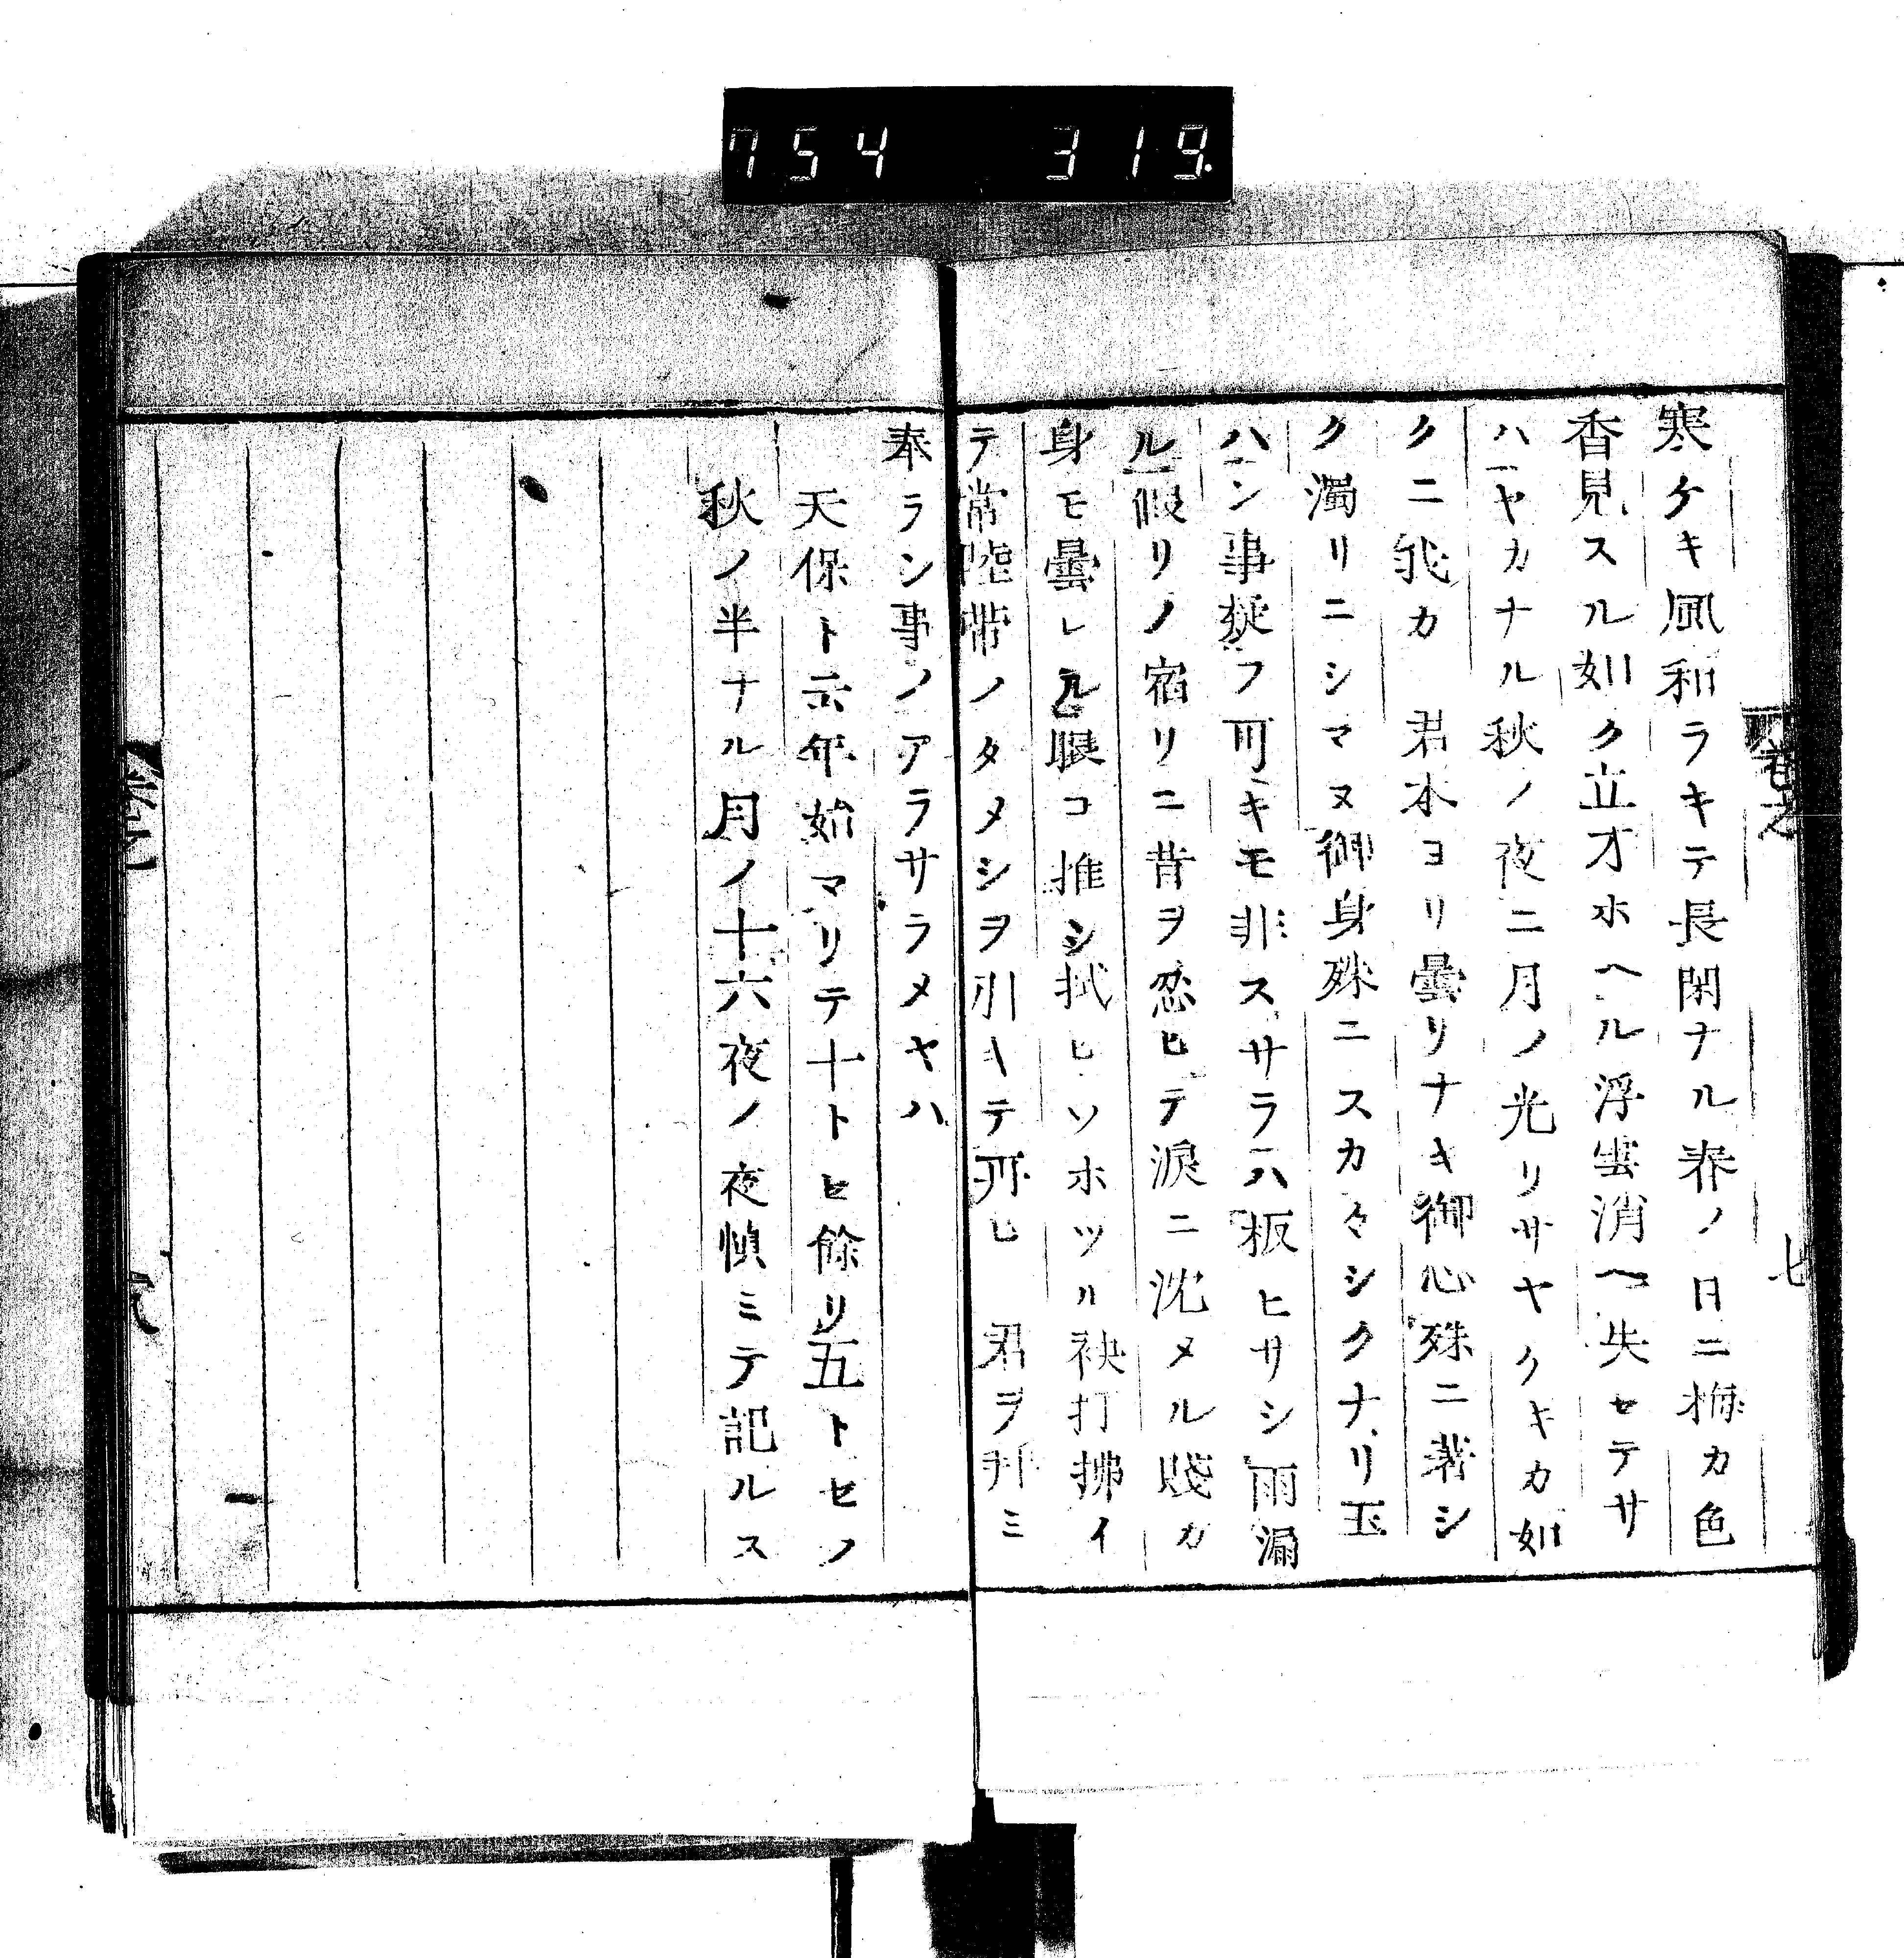 754 319
寒ケキ風和ラキテ長閑ナル春ノ日ニ梅カ色
香見スル如ク立オホヘル浮雲消ヘ失セテサ
ハヤカナル秋ノ夜ニ月ノ光リサヤクキカ如
クニ我カ 君本ヨリ曇リナキ御心殊ニ著シ
ク濁リニシマヌ御身殊ニスカ々シクナリ玉
ハン事疑フ可キモ非スサラハ板ヒサシ雨漏
ル假リノ宿リニ昔ヲ恋ヒテ涙ニ沈メル賤カ
身モ曇レル眼コ推シ拭ヒソホツル袂打拂イ
テ常陸帯ノタメシヲ引キテ再ヒ 君ヲ拜ミ
奉ラン事ノアラサラメヤハ
天保ト云年始マリテ十トヒ餘リ五トセノ
秋ノ半ナル月ノ十六夜ノ夜慎ミテ記ルス
七